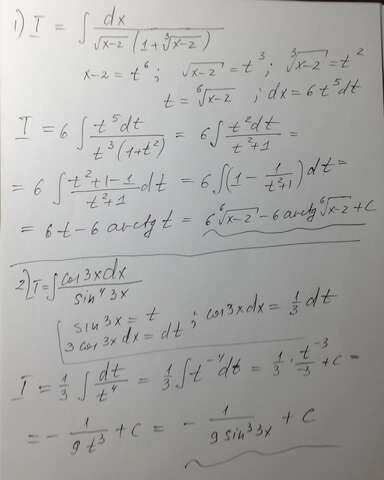 1) I = ∫ dx / (√(x-2) (1+∛(x-2)))
x-2 = t⁶ ; √(x-2) = t³ ; ∛(x-2) = t²
t = ⁶√(x-2) ; dx = 6t⁵dt
I = 6 ∫ t⁵dt / (t³(1+t²)) = 6 ∫ t²dt / (t²+1) =
= 6 ∫ (t²+1-1)/(t²+1) dt = 6 ∫ (1 - 1/(t²+1)) dt =
= 6t - 6 arctg t = 6 ⁶√(x-2) - 6 arctg ⁶√(x-2) + C
2) I = ∫ cos3xdx / sin⁴3x
sin3x = t
3cos3xdx = dt ; cos3xdx = 1/3 dt
I = 1/3 ∫ dt/t⁴ = 1/3 ∫ t⁻⁴dt = 1/3 · t⁻³/-3 + C =
= - 1/(9t³) + C = - 1/(9sin³3x) + C